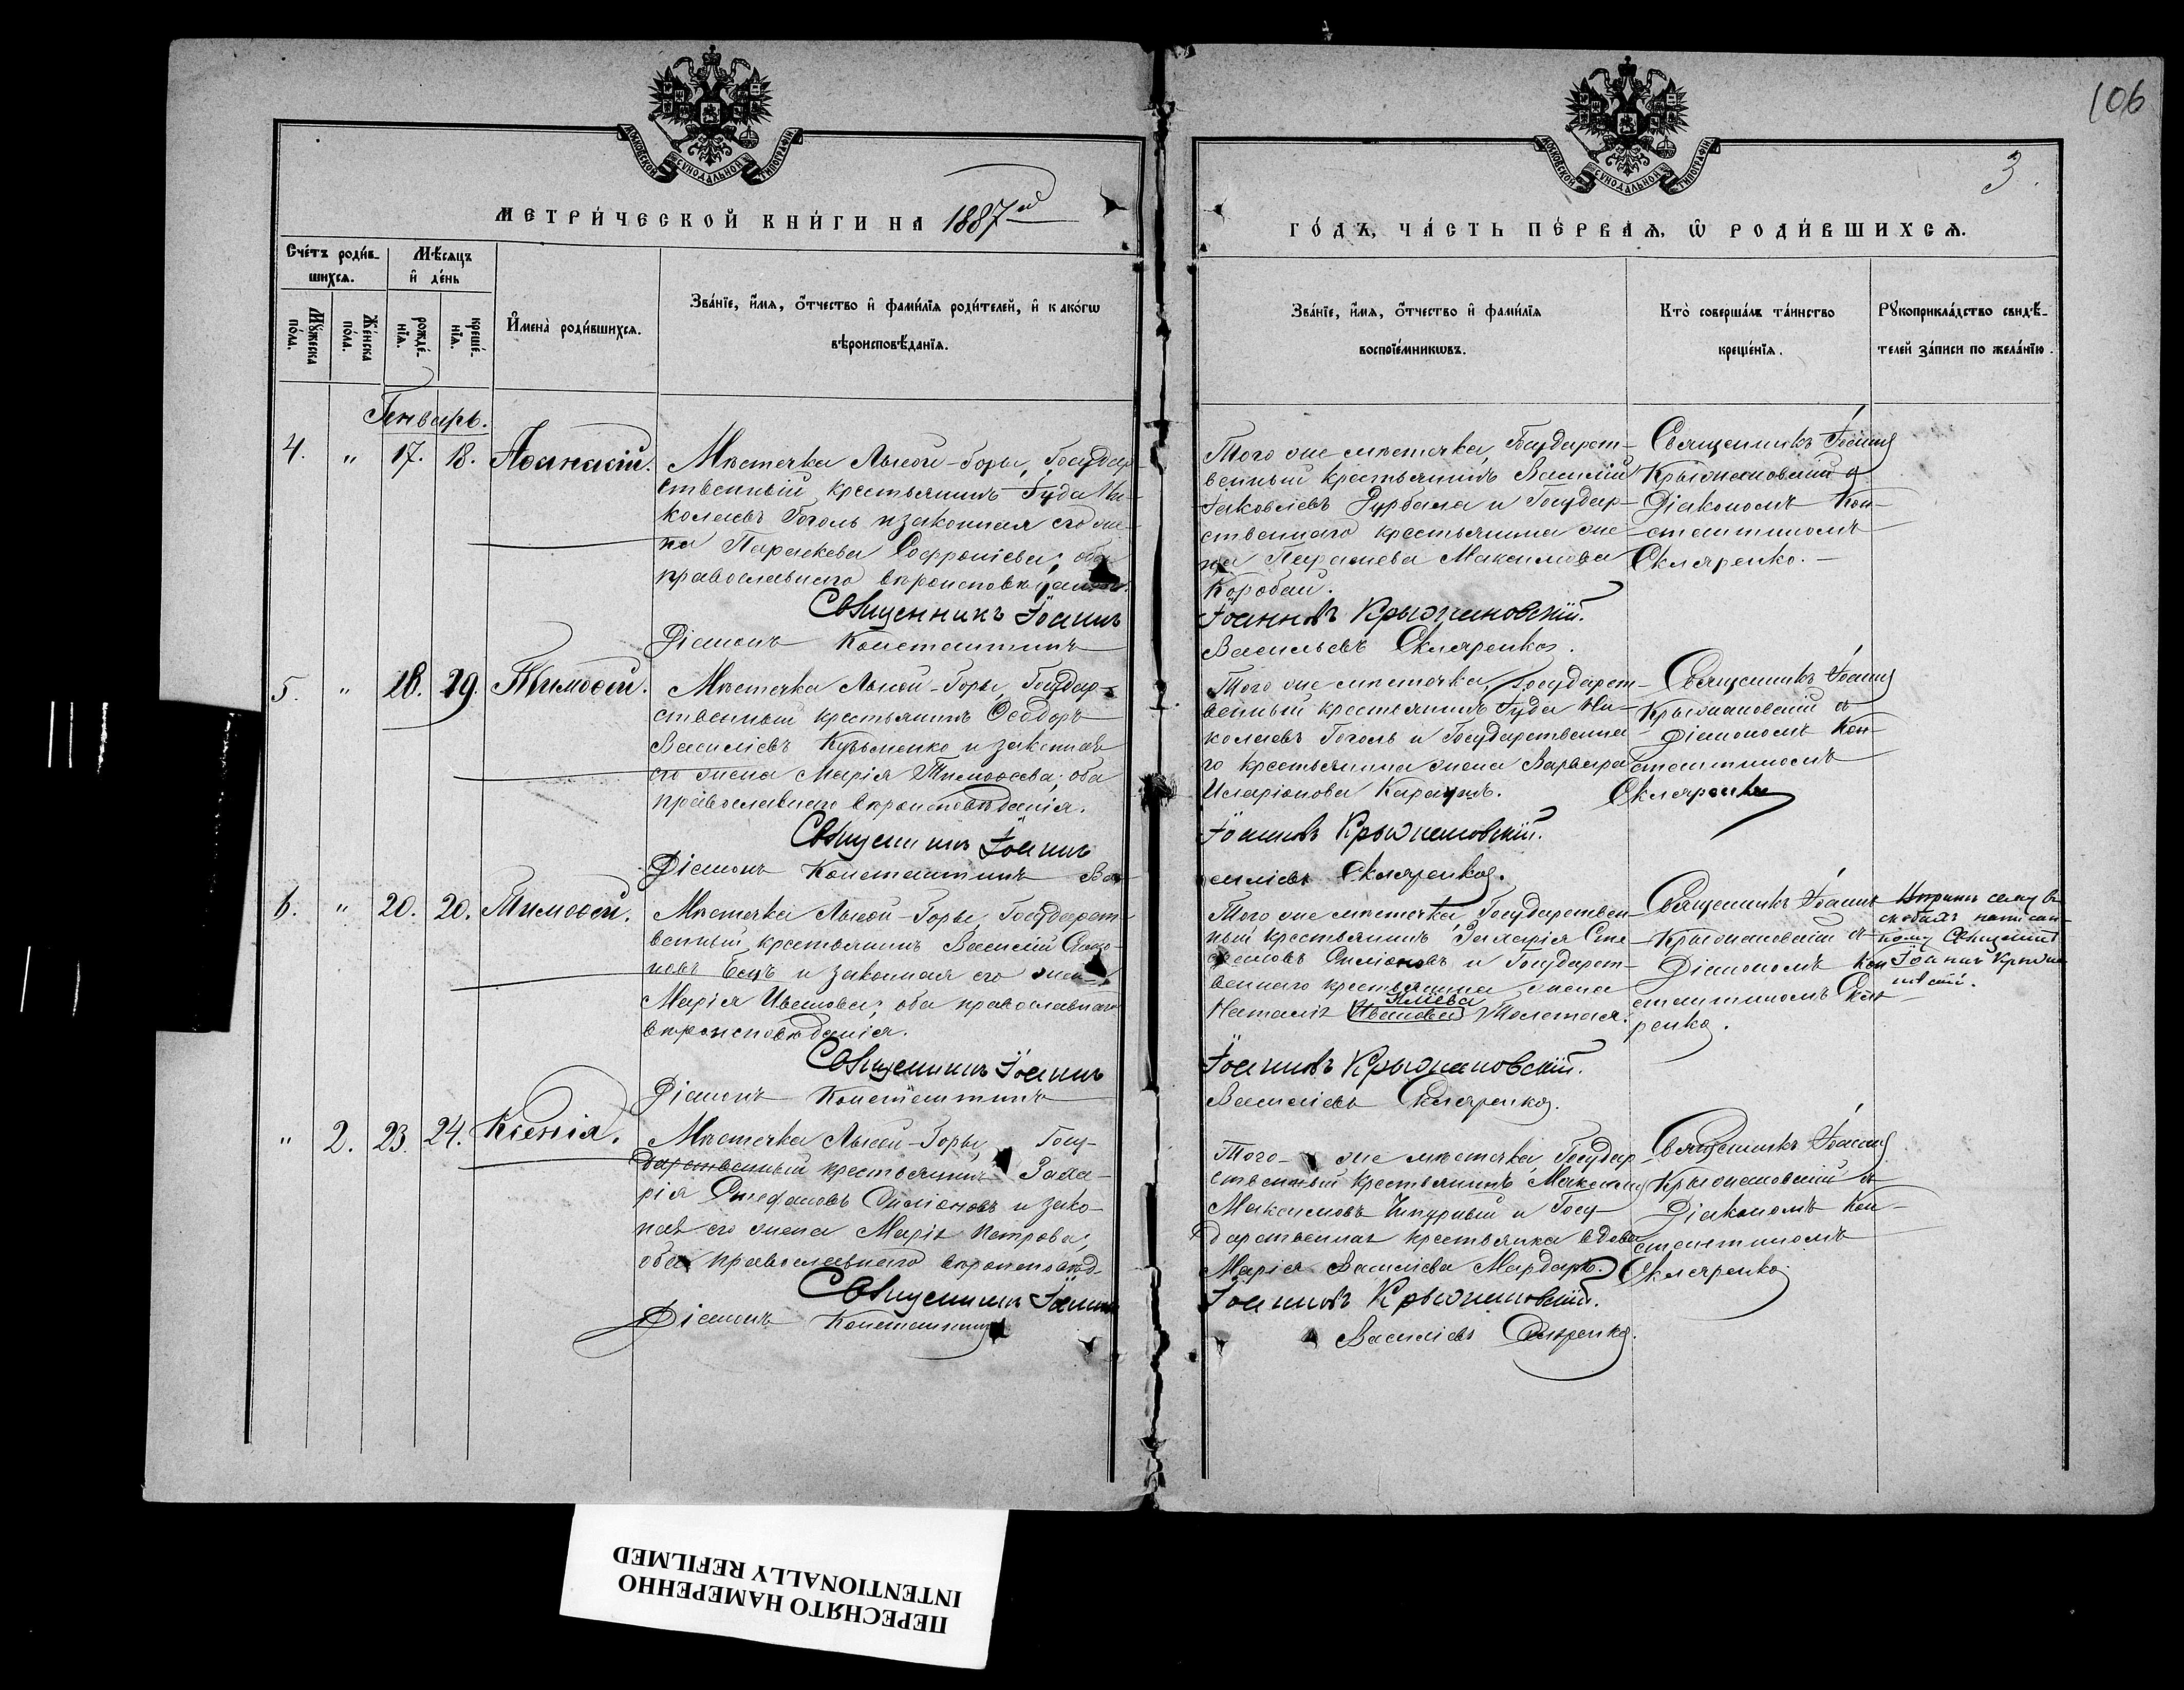 106
3.
МОСКОВСКОЙ СѴНОДАЛЬНОЙ ТИПОГРАФІИ
МОСКОВСКОЙ СѴНОДАЛЬНОЙ ТИПОГРАФІИ
МЕТРИ́ЧЕСКОЙ КНИ́ГИ НА 1887й
ГО́ДЪ, ЧА́СТЬ ПЕ́РВАѦ, Ѡ҆ РОДИ́ВШИХСѦ.
Сче́тъ роди́в-
шихсѧ.
Мѣ́сѧцъ
и҆ де́нь
Мꙋ́жеска
по́ла.
Же́нска
по́ла.
рожде́-
нїѧ.
креще́-
нїѧ.
И҆мена̀ роди́вшихсѧ.
Зва́нїе, и҆́мѧ, ѻ҆́тчество и҆ фами́лїѧ роди́телей, и҆ како́гѡ
вѣроисповѣ́данїѧ.
Зва́нїе, и҆́мѧ, ѻ҆́тчество и҆ фами́лїѧ
воспрїе́мникѡвъ.
Кто̀ соверша́лъ та́инство
креще́нїѧ.
Рꙋкоприкла́дство свидѣ́-
телей за́писи по жела́нїю.
Генварь.
4. " 17. 18. Аѳанасій.
Мѣстечка Лысой-Горы, Государ-
ственный крестьянинъ Іуда Ни-
колаевъ Гоголь и законная его же-
на Параскева Софроніева; оба
православнаго вѣроисповѣданія.
Священникъ Іоаннъ
Діаконъ Константинъ
Того же мѣстечка, Государст-
венный крестьянинъ Василій
Іаковлевъ Дурбала и Государ-
ственнаго крестьянина же-
на Параскева Максимова
Коробай.
Іоанновъ Крыжановскій.
Васильевъ Скляренко.
Священникъ Іоаннъ
Крыжановскій съ
Діакономъ Кон-
стантиномъ
Скляренко.
5. " 28. 29. Тимоѳей.
Мѣстечка Лысой-Горы, Государ-
ственный крестьянинъ Ѳеодоръ
Василіевъ Кузьменко и законная
его жена Марія Тимоѳеева; оба
православнаго вѣроисповѣданія.
Священникъ Іоаннъ
Діаконъ Константинъ Ва-
Того же мѣстечка, Государст-
венный крестьянинъ Іуда Ни-
колаевъ Гоголь и Государственна-
го крестьянина жена Варвара
Иларіонова
Іоанновъ Крыжановскій.
силіевъ Скляренко.
Священникъ Іоаннъ
Крыжановскій съ
Діакономъ Кон-
стантиномъ
Скляренко
6. " 20. 20. Тимоѳей.
Мѣстечка Лысой-Горы, Государст-
венный крестьянинъ Василій
новъ и законная его жена
Марія Иванова; оба православнаго
вѣроисповѣданія.
Священникъ Іоаннъ
Діаконъ Константинъ
Того же мѣстечка, Государствен-
ный крестьянинъ Захарія Сте-
фановъ Симоновъ и Государст-
веннаго крестьянина жена
Иліева
Наталія Иванова Толстая.
Іоанновъ Крыжановскій.
Василіевъ Скляренко.
Священникъ Іоаннъ
Крыжановскій съ
Діакономъ Кон
стантиномъ Скля-
ренко.
сему въ
скобкахъ написан-
ному Священникъ
Іоаннъ Крыжа-
новскій.
" 2. 23. 24. Ксенія.
Мѣстечка Лысой-Горы, Госу-
дарственный крестьянинъ Заха-
рія Стефановъ Симоновъ и зако-
ная его жена Марія Петрова;
оба православнаго вѣроисповѣд-
Священникъ Іоаннъ
Діаконъ Константинъ
Того- же мѣстечка, Государ-
ственный крестьянинъ Максимъ
Максимовъ Чепурный и Госу-
дарственная крестьянка вдова
Марія Василіева Мардарь.
Іоанновъ Крыжановскій.
Василіевъ Скляренко.
Священникъ Іоаннъ
Крыжановскій съ
Діакономъ Кон-
стантиномъ
Скляренко
ПЕРЕСНЯТО НАМЕРЕННО
INTENTIONALLY REFILMED